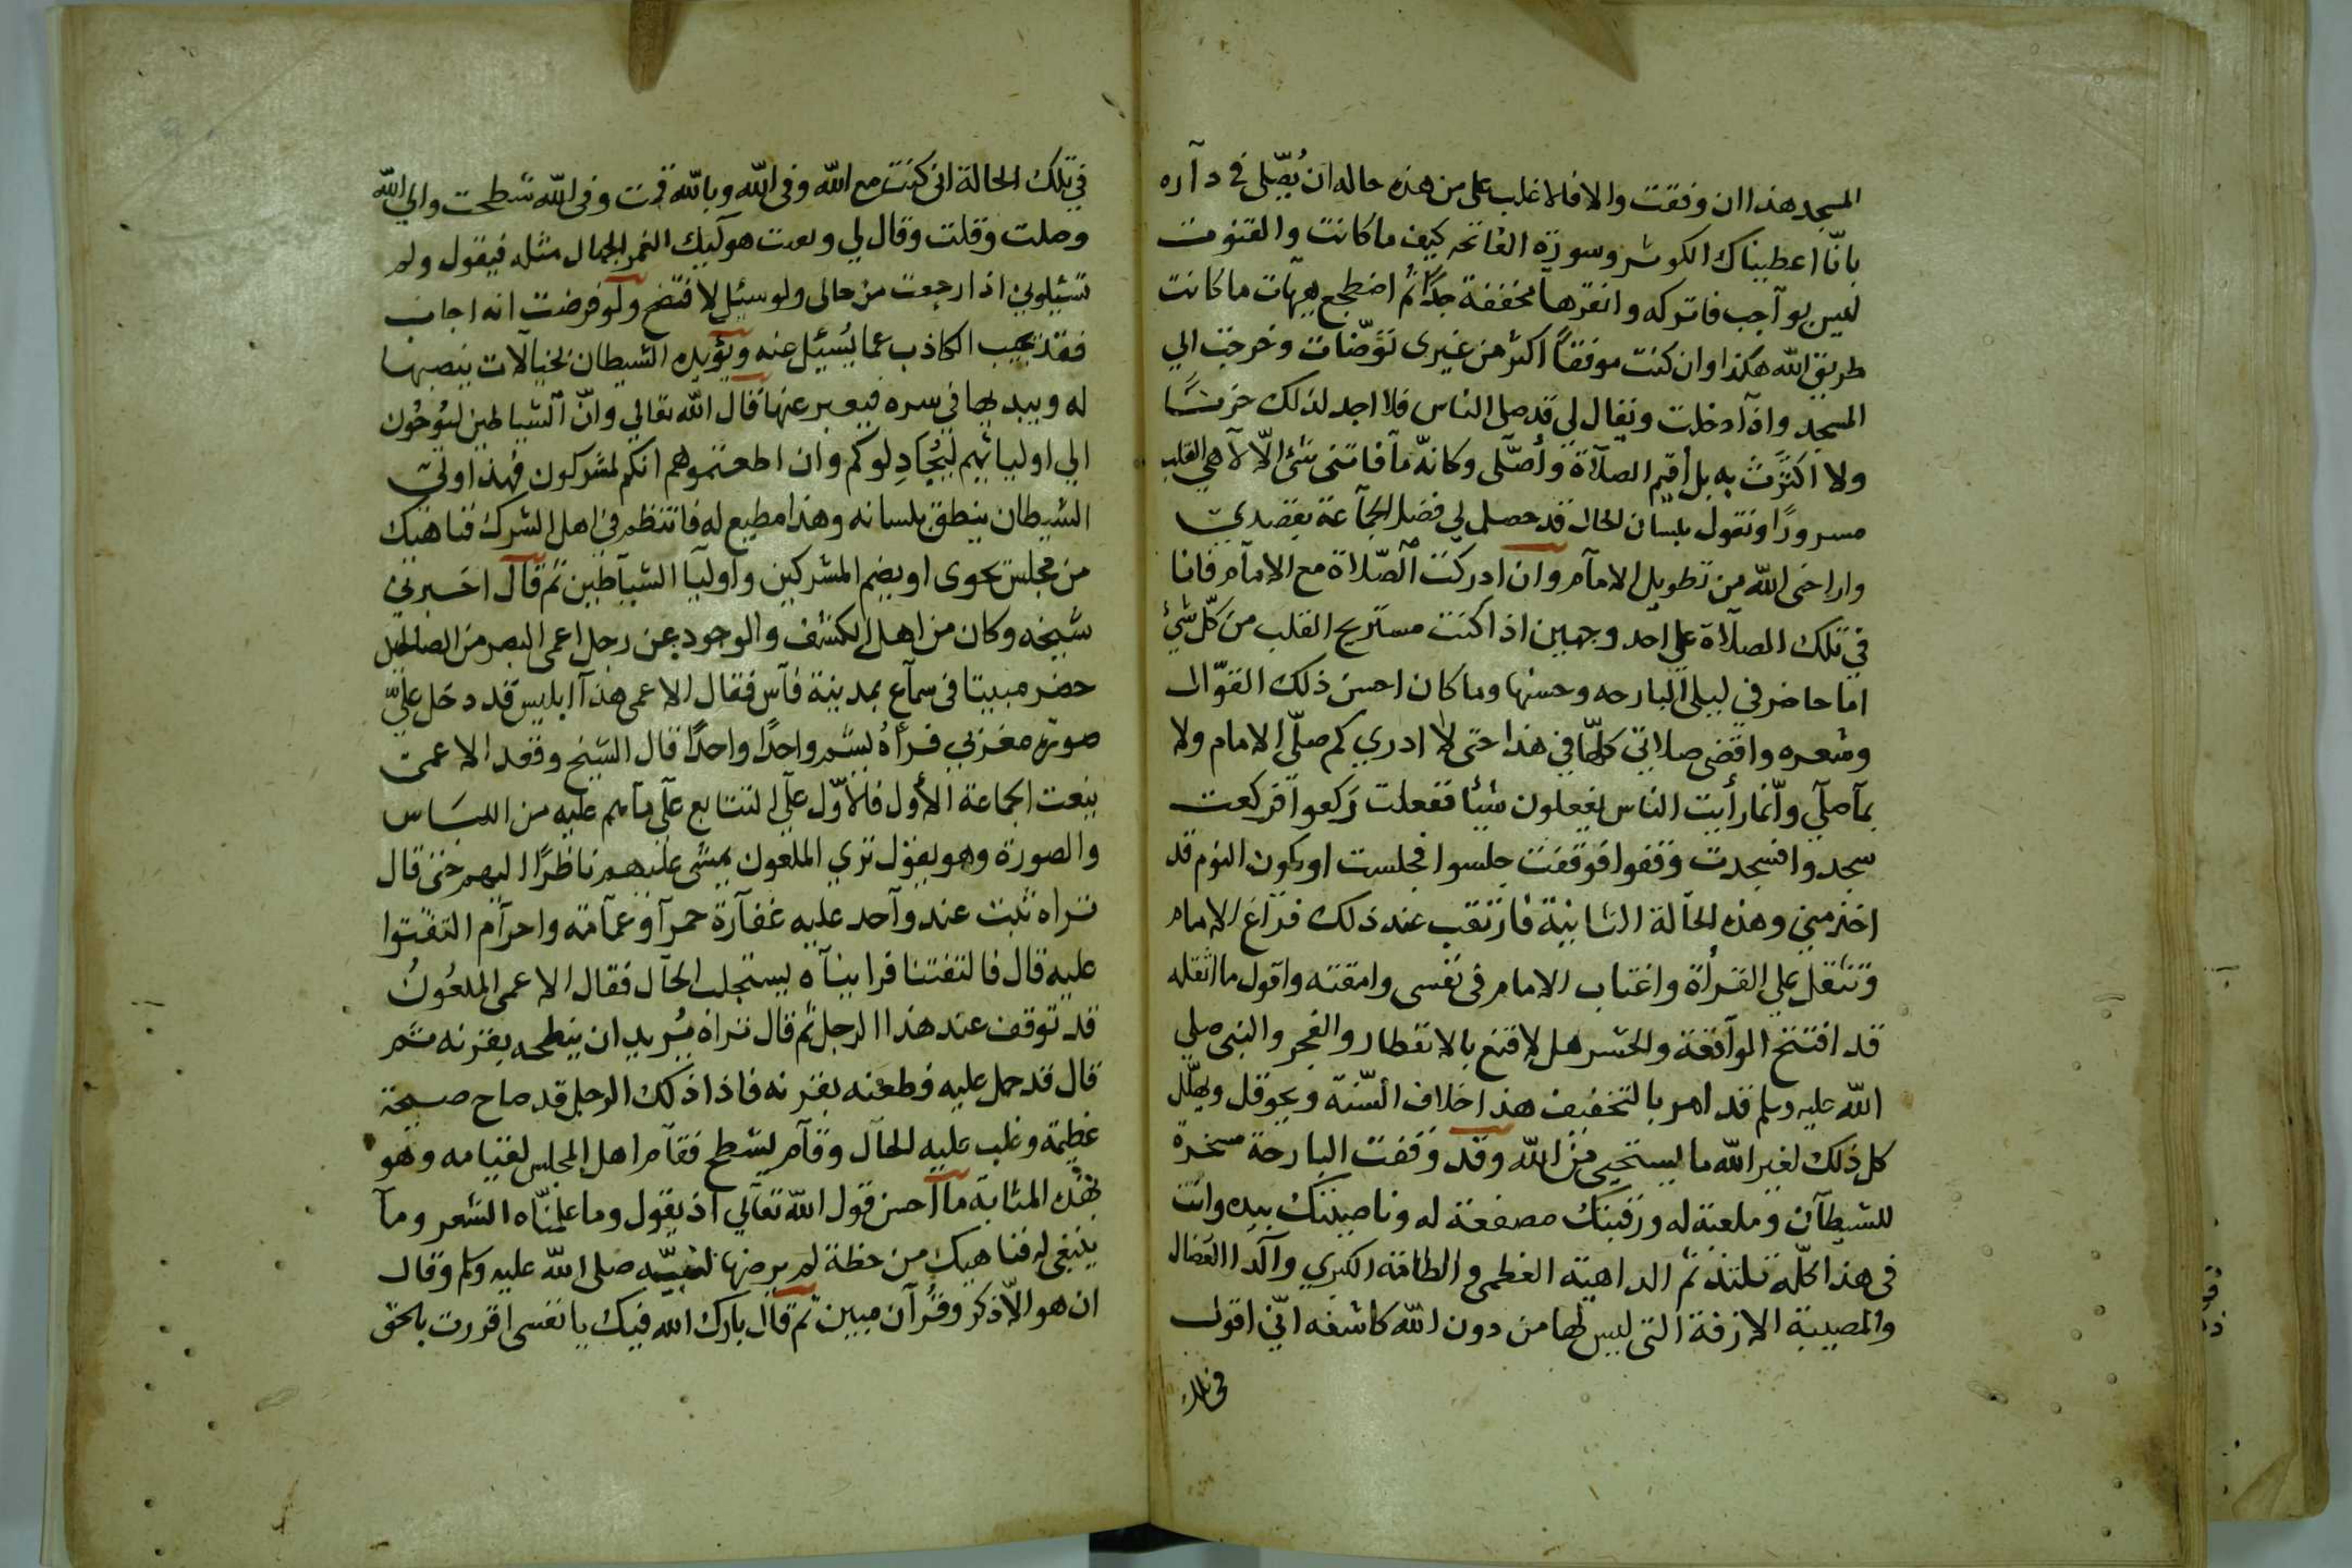 المسجد هذا ان وفقت والا فالاغلب على من هذه حاله ان يُصّلى في دآره
بانّا اعطيناك الكوثر وسورة الفاتحه كيف ما كانت والقنوت
ليس بوآجب فاتركه وانقرهآ مخففة جدًا ثم اضطجع يهآت ما كانت
طريق الله هكذا وان كنت موفقاً اكثر من غيرى توّضّات وخرجت الي
المسجد واذآ دخلت ويقال لى قد صلى الناس فلا اجد لذلك حزنًا
ولا اكترث به بل أقيم الصلآة وأصّلى وكانّه مآ فاتنى شئ الّا لآهي القلب
مسرورًا ونقول بلسان الحال قد حصل لي فضل الجمآعة بقصدي
واراحنى الله من تطويل الامآم وان ادركت الصّلاة مع الامآم فانا
في تلك الصلآة على احد وجهين اذا كنت مستريح القلب من كلّ شئ
اما حاضر في ليلى البارحه وحسنها وما كان احسن ذلك القوّال
وشعره واقضى صلاتي كلهّا في هذا حتى لا ادري كم صلّى الامام ولا
بمآ صلّي وانّما رأيت الناس يفعلون شيئا ففعلت ركعوا فركعت
سجدوا فسجدت وقفوا فوقفت جلسوا فجلست او يكون النوم قد
اخذ مني وهذه الحآلة الثانية فارتقب عند ذلك فرآغ الامام
وتثقل علي القرأة واغتاب الامام فى نفسى وامقته واقول ما اثقله
قد افتتح الوآقعة والحشر هل لا قنع بالانفطار والفجر والنبى صلى
الله عليه وسلم قد امر بالتخفيف هذا خلاف السّنة ويحوقل ويهلّل
كل ذلك لغير الله ما يستحيى من الله وقد وقفت البارحة مسخرة
للشيطآن وملعبة له ورقبتك مصفعة له وناصيتك بيده وانت
فى هذا كلّه تلتذ ثم الداهية العظمى والطامة الكبري والّدا العضال
والمصيبة الازفة التى ليس لها من دون الله كاشفه انّي اقول
فى تلك
في تلك الحالة انى كنت مع الله وفى الله وبالله قمت وفى الله شطحت والي الله
وصلت وقلت وقال لي مثله فيقول ولم
تسئلونى اذا رجعت من حالى ولو سيئل لافتضح ولو فرضت انه اجاب
فقد يجيب الكاذب عما يُسئيل عنه ويؤيده الشيطان بخيالات ينصبها
له ويبديها في سره فيعبر عنها قال الله تعالي وانّ الشياطين ليوحُون
الي اوليائهم ليُجادِلوكم وان اطعتموهم انكم لمشركون فهذا ولي
الشيطان ينطق بلسانه وهذا مطيع له فانتظم في اهل الشرك فناهيك
من مجلس يحوى او يضم المشركين وأوليآ الشيآطين ثم قال اخبرني
شيخه وكان من اهل الكشف والوجود عن رجل اعمى البصر من الصالحين
حضر مبيتا فى سمآع بمدينة فآس فقال الاعمى هذآ ابليس قد دخل علىّ
صورة مغزبي فرأهُ يشم واحدًا واحدًا قال الشيخ وقعد الاعمى
ينعت الجماعة الأول فالأوّل علي التتابع علي مآ هم عليه من اللبَاس
والصورة وهو يقول تري الملعون يمشى عليهم ناظرًا اليهم حتى قال
نراه ثبت عند وآحد عليه غفآرة حمرآ وعمآمة واحرآم التفتوا
عليه قال فالتفتنا فراينآه يستجلب الحآل فقال الاعمى الملعُونُ
قد توقف عند هذا الرجل ثم قال نراه يُريد ان ينطحه بقرنه ثم
قال قد حمل عليه وطعنه بقرنه فاذا ذلك الرجل قد صاح صيحة
عظيمة وغلب عليه الحآل وقآم يشطح فقآم اهل المجلس لقيامه وهو
بهذه المثابة ما احسن قول الله تعآلي اذ يقول وما علمنّاه الشعر ومآ
ينبغى له فناهيك من خطة لم يرضها لنبيّه صلى الله عليه وسلم وقال
ان هو الّا ذكر وقرآن مبين ثم قال بارك الله فيك يا نفسى اقررت بالحق